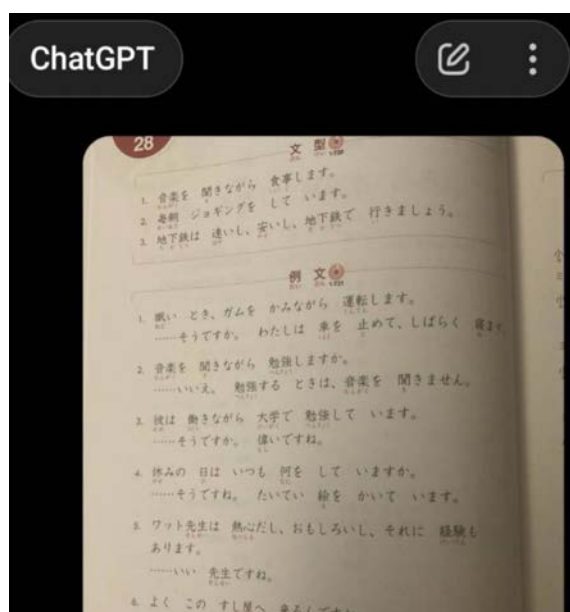 ChatGPT
28
文型
1. 音楽を 聞きながら 食事します。
2. 毎朝 ジョギングを して います。
3. 地下鉄は 速いし、安いし、地下鉄で 行きましょう。
例文
1. 眠い とき、ガムを かみながら 運転します。
……そうですか。 わたしは 車を 止めて、しばらく 寝ます
2. 音楽を 聞きながら 勉強しますか。
……いいえ。 勉強する ときは、音楽を 聞きません。
3. 彼は 働きながら 大学で 勉強して います。
……そうですか。 偉いですね。
4. 休みの 日は いつも 何を して いますか。
……そうですね。 たいてい 絵を かいて います。
5. ワット先生は 熱心だし、おもしろいし、それに 経験も
あります。
……いい 先生ですね。
6. よく この すし屋へ